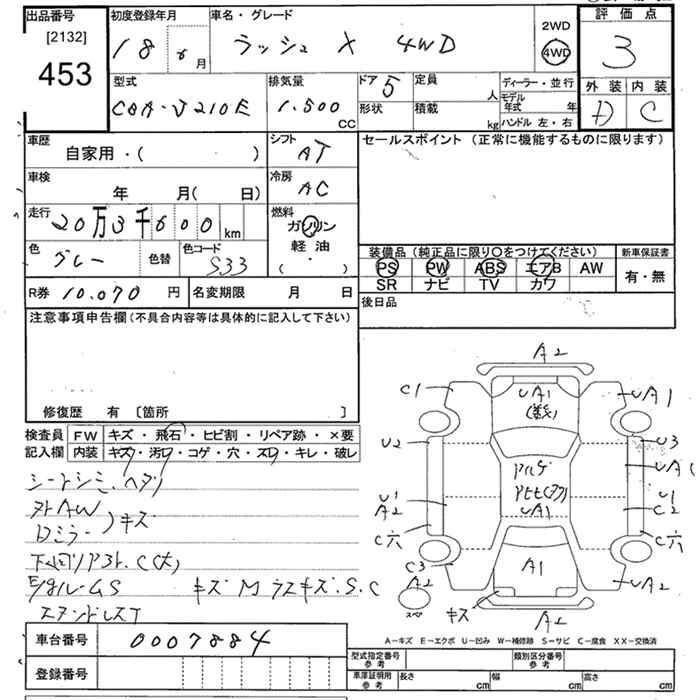 出品番号
[2132]
453
初度登録年月
18 6 月
車名・グレード
ラッシュ X 4WD
2WD
4WD
評価点
3
外装 内装
D C
型式
CBA-J210E
排気量
1.500
CC
ドア 5
形状
定員 人
積載 kg
ディーラー・並行
モデル年式 年
ハンドル 左・右
車歴
自家用・( )
シフト
AT
セールスポイント（正常に機能するものに限ります）
車検
年 月( 日)
冷房
AC
走行
20万3千600 km
燃料
ガソリン
軽油
( ・ )
色
グレー
色替
色コード
S33
装備品（純正品に限り〇をつけてください）
新車保証書
PS PW ABS エアB AW
SR ナビ TV カワ
有・無
R券 10.070 円
名変期限 月 日
後日品
注意事項申告欄（不具合内容等は具体的に記入して下さい）
修復歴 有 〔箇所 〕
検査員
記入欄
FW キズ・飛石・ヒビ割・リペア跡・×要
内装 キズ・汚レ・コゲ・穴・スレ・キレ・破レ
シートシミ、ヘタリ
外AW
Dミラー
キズ
キズ M ラスキズ.S.C
A2
C1
UA1
UA1
U2
U3
UA1
U1
A2
UA1
U1
C2
C穴
C穴
C3
A2
A1
UA2
キズ
A2
A-キズ E-エクボ U-凹み W-補修跡 S-サビ C-腐食 XX-交換済
車台番号
0007884
登録番号
型式指定番号
参考
類別区分番号
参考
車庫証明用
参考
長さ cm
幅 cm
高さ cm